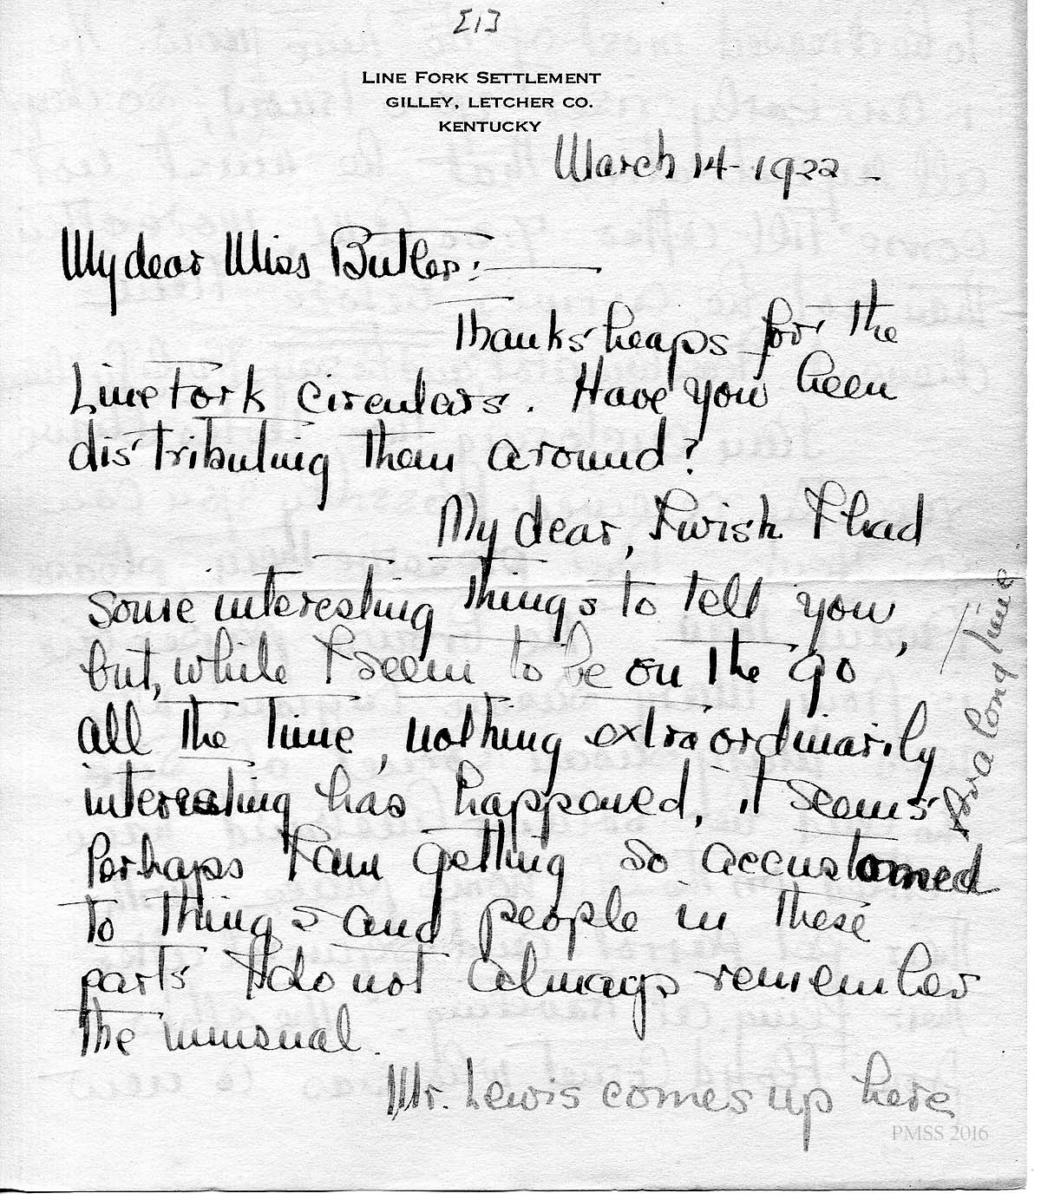 [1]
LINE FORK SETTLEMENT
GILLEY, LETCHER CO.
KENTUCKY
March 14-1922-
My dear Miss Butler:
Thanks heaps for the
Line Fork circulars. Have you been
distributing them around?
My dear, I wish I had
some interesting things to tell you,
but, while I seem to be on the go
all the time, nothing extraordinarily
interesting has happened, it seems
for a long time.
Perhaps I am getting so accustomed
to things and people in these
parts I do not always remember
the unusual.
Mr. Lewis comes up here
PMSS 2016